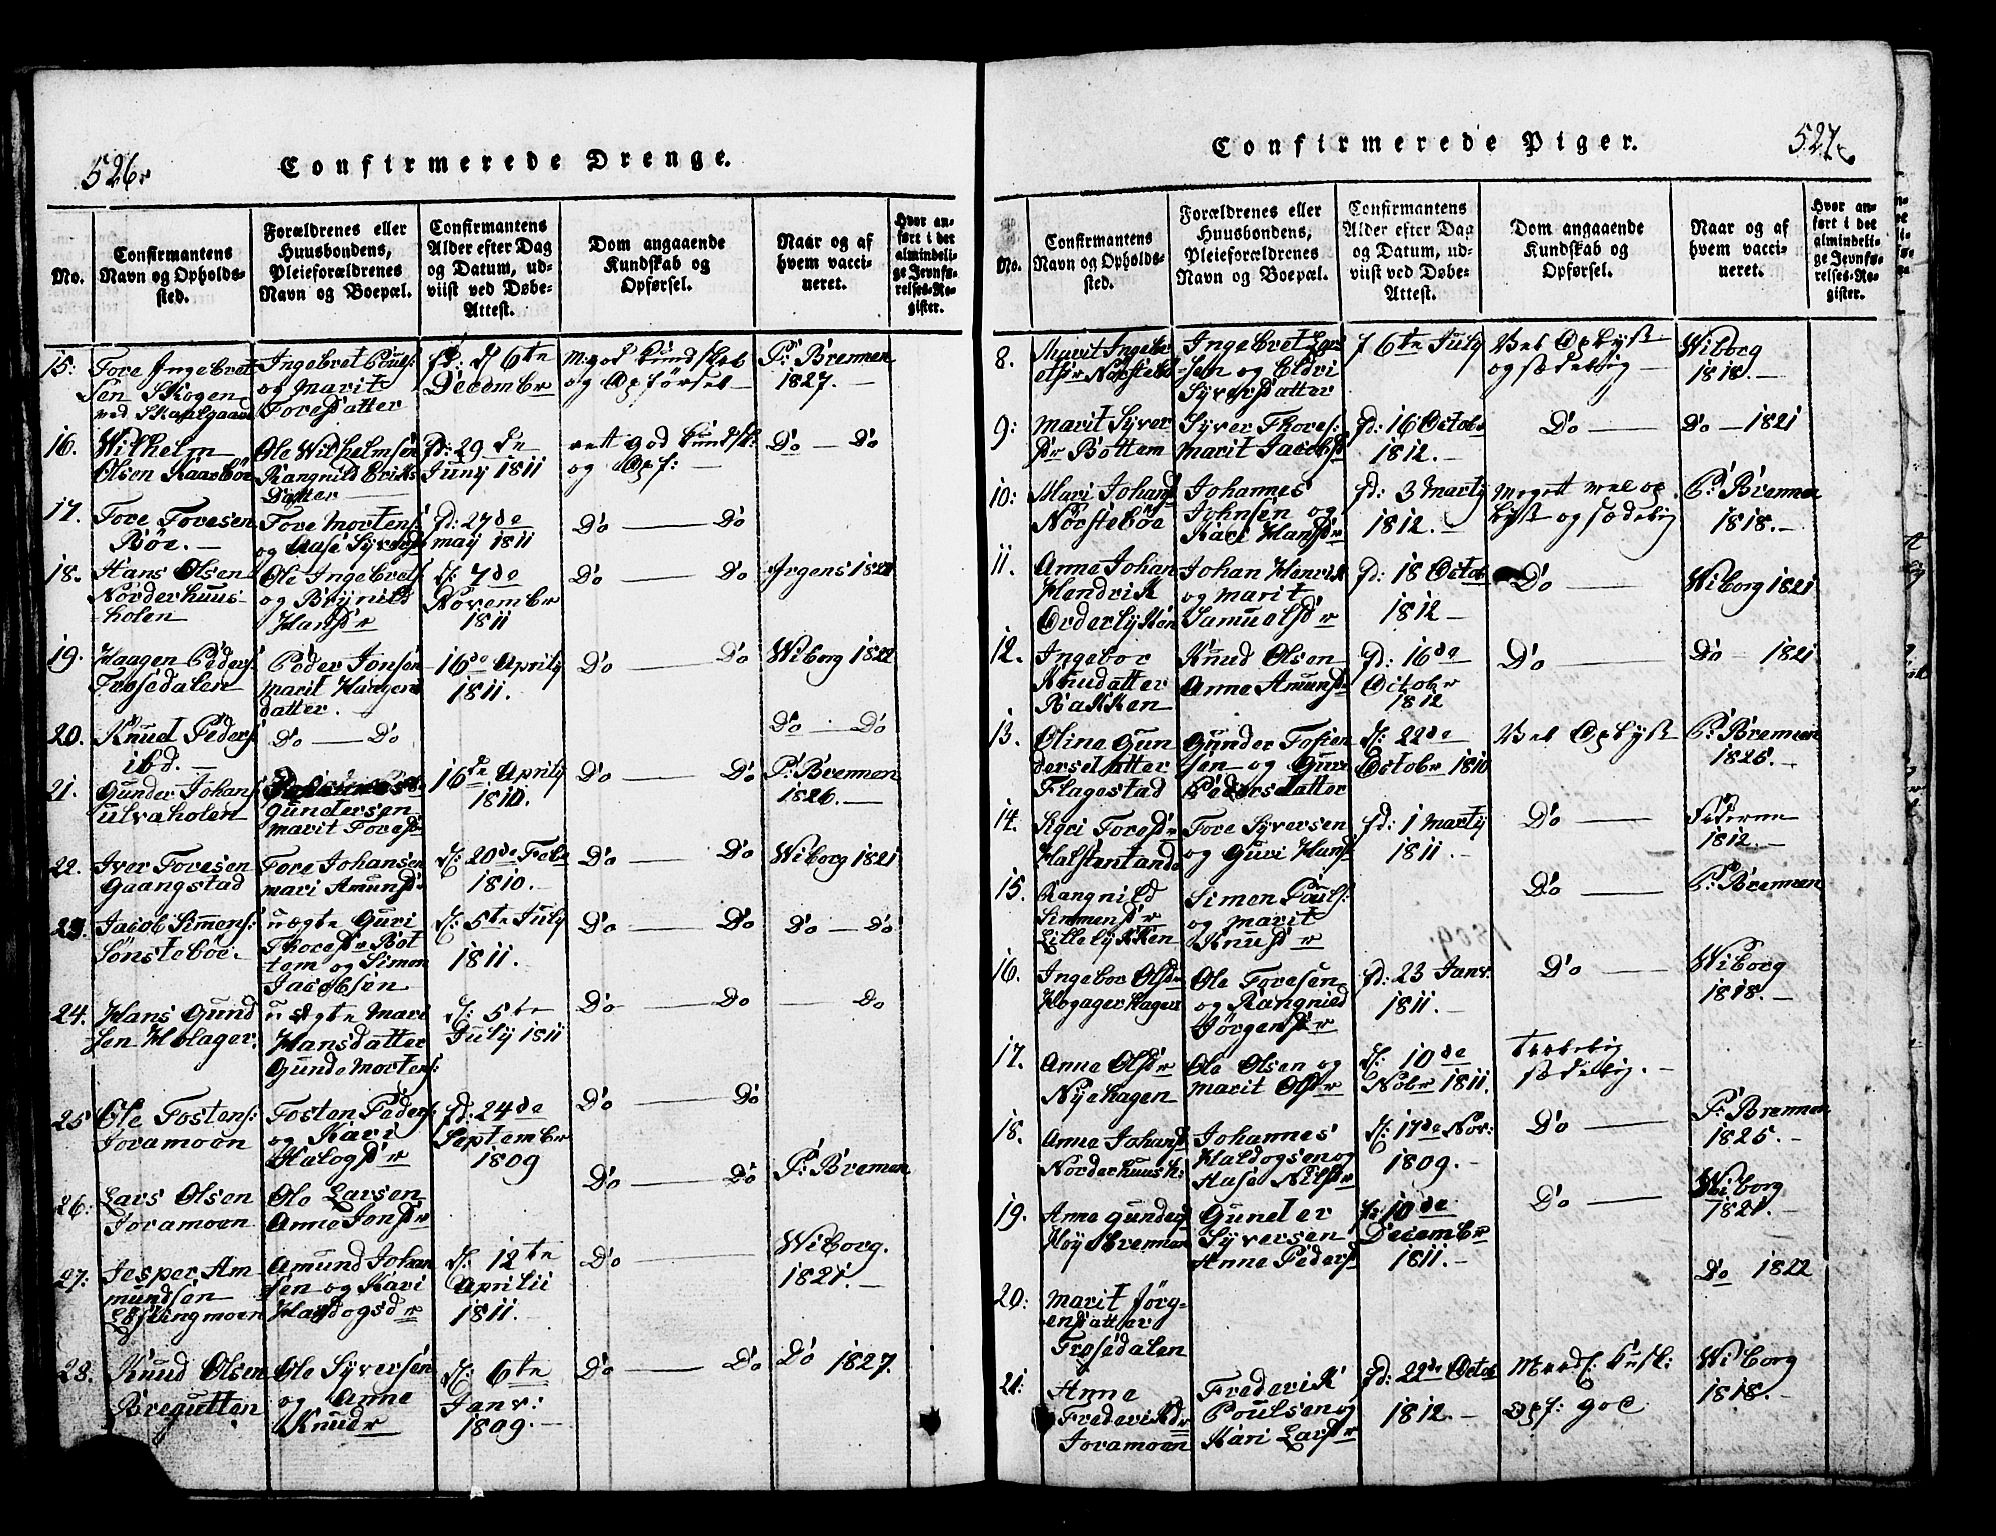 526.
Confirmerede Drenge.
No.
Confirmantens
Navn og Opholds-
sted.
Forældrenes eller
Huusbondens,
Pleieforældrenes
Navn og Boepæl.
Confirmantens
Alder efter Dag
og Datum, ud-
viist ved Døbe-
Attest.
Dom angaaende
Kundskab og
Opførsel.
Naar og af
hvem vacci-
neret.
Hvor an-
ført i det
almindeli-
ge Jevnfø-
relses-Re-
gister.
15.
Tore Ingebret
sen Skogen
ved Skaalgaard
Ingebret Pouls:
og Marit
Toresdatter
fd: d 6te
December
M: god Kundskab
og Opførsel
P: Brennen
1827. —
16.
Wilhelm
Olsen Kaarbøe
Ole Wilhelmsen
Rangnild Eriks
Datter
fd: 29 de
Juny 1811
ret god Kundsk:
og Opf: —
Do — Do
17.
Tore Toresen
Bøe. —
Tore Mortens:
og Aase Syversd
fd: 27de
May 1811
Do — Do
18.
Hans Olsen
Norderhuus-
holen
Ole Ingebrets
og Brynild
Hansdr
d: 7de
November
1811
Do — Do
Irgens 1821
19.
Haagen Peders:
Frosedalen
Peder Jonsen
Marit Haagens
datter. —
16de Aprily
1811.
Do — Do
Wiborg 1822
20.
Knud Peders:
ibd. —
Do — Do
Do — Do
21.
Gunder Johans
Ulvaholen
Gundersen
Marit Toresd
16de Aprily
1810.
Do — Do
P: Brennen
1826. —
22.
Iver Toresen
Gaangstad
Tore Johansen
Mari Amunsd:
d: 20de Febr
1810. —
Do — Do
Wiborg 1821
23.
Jacob Simens:
Sønstebøe.
uægte Guri
Thoresdr Bot
tem og Simen
Jacobsen
d: 5te July
1811.
Do — Do
Do — Do
24.
Hans Gund
sen Holager.
uægte Mari
Hansdatter
Gunde Mortens:
d: 5te
July 1811
Do — Do
— Do
25
Ole Tostens:
Joramoen
Tosten Peders
og Kari
Halogsdr
fd: 24de
September
1809
Do — Do
26.
Lars Olsen
Joramoen
Ole Larsen
Anne Jonsdr
Do — Do
P: Bremen
27.
Jesper Am
mundsen
Løslingmoen
Amund Johan
sen og Kari
Haldogsdr
d: 12te
Aprilii
1811. —
Do —
Wiborg.
1821. —
28.
Knud Olsen
Bregutten
Ole Syversen
og Anne
Knudr
d: 6te
Janr:
1809. —
Do — Do
Do 1827.
527.
Confirmerede Piger.
No.
Confirmantens
Navn og Opholds-
sted.
Forældrenes eller
Huusbondens,
Pleieforældrenes
Navn og Boepæl.
Confirmantens
Alder efter Dag
og Datum, ud-
viist ved Døbe-
Attest.
Dom angaaende
Kundskab og
Opførsel.
Naar og af
hvem vacci-
neret.
Hvor an-
ført i det
almindeli-
ge Jevnfø-
relses-Re-
gister.
8.
Marit Ingebr
etsdr Norstebø
Ingebret Lar
sen og Eldri
Syversdatter
6te July
Vel Oplyst
og sædelig —
Wiborg
1818. —
9.
Marit Syver
dr Bottem
Syver Thores:
Marit Jacobsd
fd: 16 Octobr
1812. —
Do —
Do — 1821
10:
Mari Johans
Norstebøe
Johannes
Johnsen og
Kari Hansdr
fd: 3 Marty
1812. —
Meget vel op
lyst og sædelig
P: Brennen
1818. —
11.
Anne Johan
Hendrik
Orderlykken
Johan Henrik
og Marit
Samuelsdr
fd: 18 Octob
1812 —
Do —
Wiborg 1821
12.
Ingebor
Knudatter
Bakken
Knud Olsen
Anne Amunsd
fd: 16de
Octobr
1812
Do —
Do — 1821
13.
Oline Gun
dersdatter
Flagestad
Gunder Tosten
sen og Guri
Pedersdatter
d: 22de
Octobr 1810
Vel Oplyst
P: Brennen
1825. —
14.
Sigri Toresdr
Halstentande
Tore Syversen
og Guri Hansd
fd: 1 Marty
1811. —
Do —
1812. —
15.
Rangnild
Simmensdr
Lillelykken
Simon Pouls:
og Marit
Knusdr
Do —
P: Brennen
16.
Ingebor Olsdr
Ole Toresen
og Rangnild
Jørgensdr
fd: 23 Janr.
1811. —
Do —
Wiborg
1818. —
17.
Anne Olsdr
Nyehagen
Ole Olsen og
Marit Olsdr
d: 10de
Nobr 1811.
sædelig. —
18.
Anne Johansd
Norderhuush:
Johannes
Haldogsen og
Aase Nilsdr
d: 17de Nov:
1809. —
Do —
P: Brennen
1825. —
19.
Anne Gunders
Høybrennen
Gunder
Syversen
Anne Pedersd
10de
December
1811. —
Do —
Wiborg
1821. —
20:
Marit Jørg-
ensdatter
Frosedalen
Do 1822
21:
Anne
Frederikdr
Joramoen
Frederik
Poulsen og
Kari Larsdr
fd: 22de Octob
1812. —
Opf: god
Wiborg
1818. —